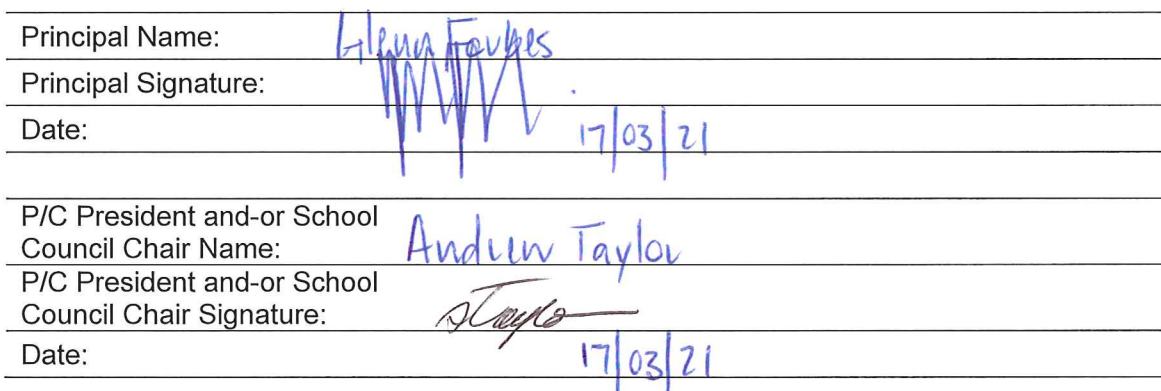 Principal Name: Glenn Forbes
Principal Signature:
Date: 17/03/21
P/C President and-or School
Council Chair Name: Andrew Taylor
P/C President and-or School
Council Chair Signature: ATaylor
Date: 17/03/21